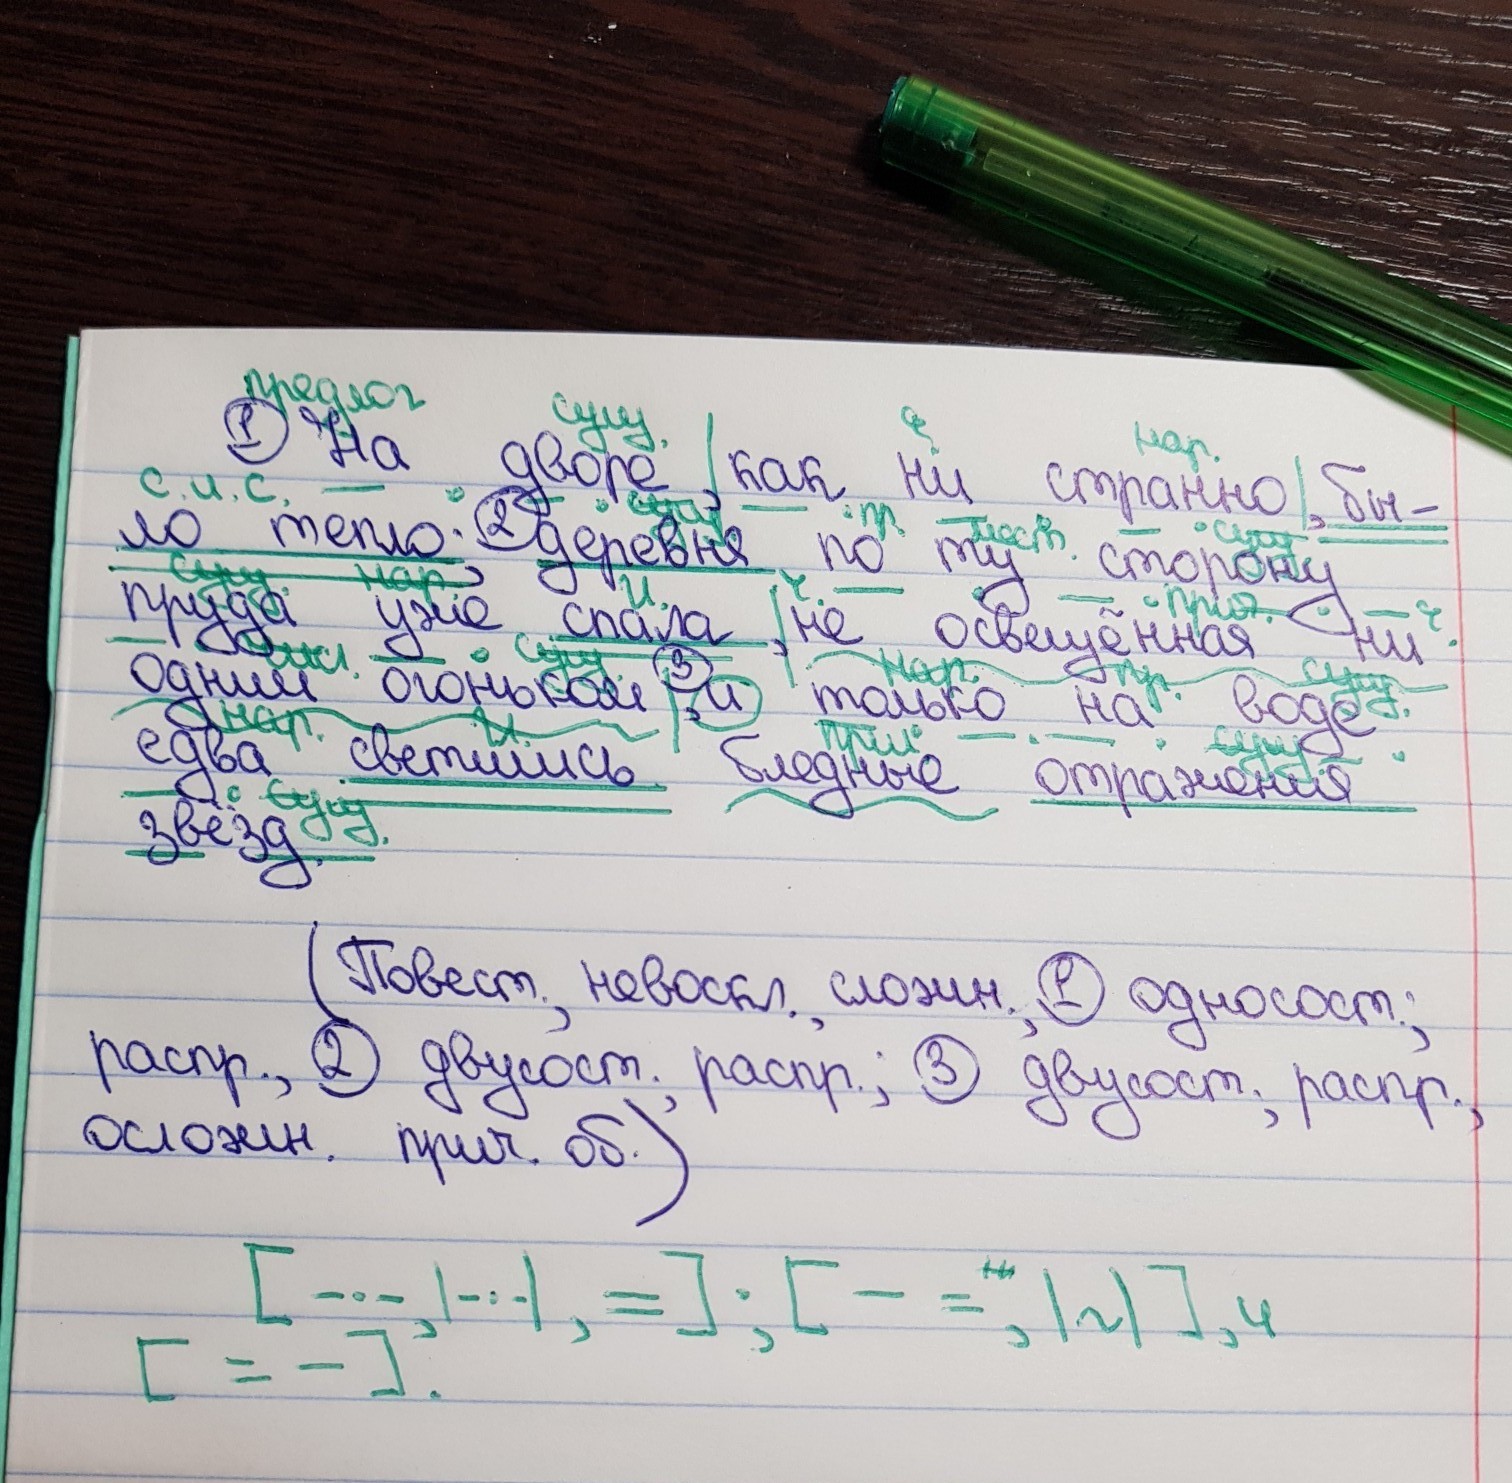 предлог сущ. ч. нар.
① На дворе, как ни странно, бы-
с.и.с. сущ. пр. мест. сущ.
ло тепло; ② деревня по ту сторону
сущ. нар. ч. прич. ч.
пруда уже спала, не освещённая ни
сущ. нар. пр. сущ.
одним огоньком, ③ и только на воде
нар. прил. сущ.
едва светились бледные отражения
сущ.
звёзд.
(Повест., невоскл., сложн., ① односост.;
распр., ② двусост., распр.; ③ двусост., распр.,
осложн. прич. об.)
[-·-·-, |-·-·|, =]; [- =, |~|], и
[= -].